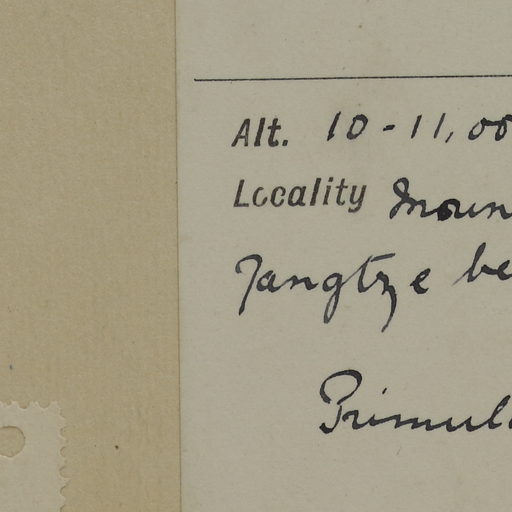 Alt. 10-11,00
Locality Moun
Yangtze be
Primul